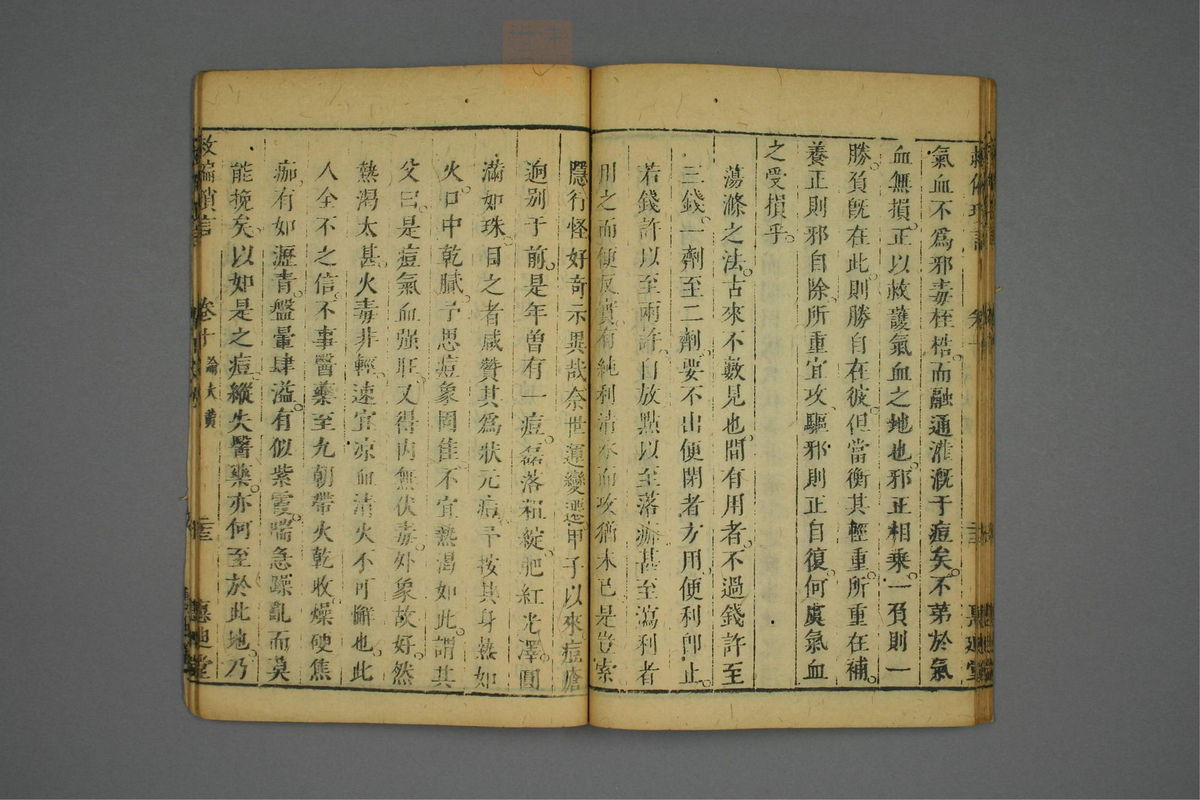 氣血不為邪毒枉梏而融通灌溉于痘矣不第於氣
血無損正以救護氣血之地也邪正相乘一負則一
勝負既在此則勝自在彼但當衡其輕重所重在補
養正則邪自除所重宜攻驅邪則正自復何虞氣血
之受損乎
蕩滌之法古來不數見也間有用者不過錢許至
三錢一劑至二劑要不出便閉者方用便利即止
若錢許以至兩許自放點以至落痂甚至瀉利者
用之而便反實有純利清水而攻猶未已是豈索
隱行怪好奇示異哉奈世運變遷甲子以來痘瘡
逈別于前是年曾有一痘磊落粗綻肥紅光澤圓
滿如珠目之者咸贊其為狀元痘予按其身熱如
火口中乾膩予思痘象固佳不宜熱渴如此謂其
父曰是痘氣血強旺又得內無伏毒外象故好然
熱渴太甚火毒非輕速宜涼血清火不可懈也此
人全不之信不事醫藥至九朝帶火乾收燥硬焦
痂有如瀝青盤暈肆溢有似紫霞喘急躁亂而莫
能挽矣以如是之痘縱失醫藥亦何至於此地乃
救偏瑣言 卷十 論大黃 三 惠迪堂